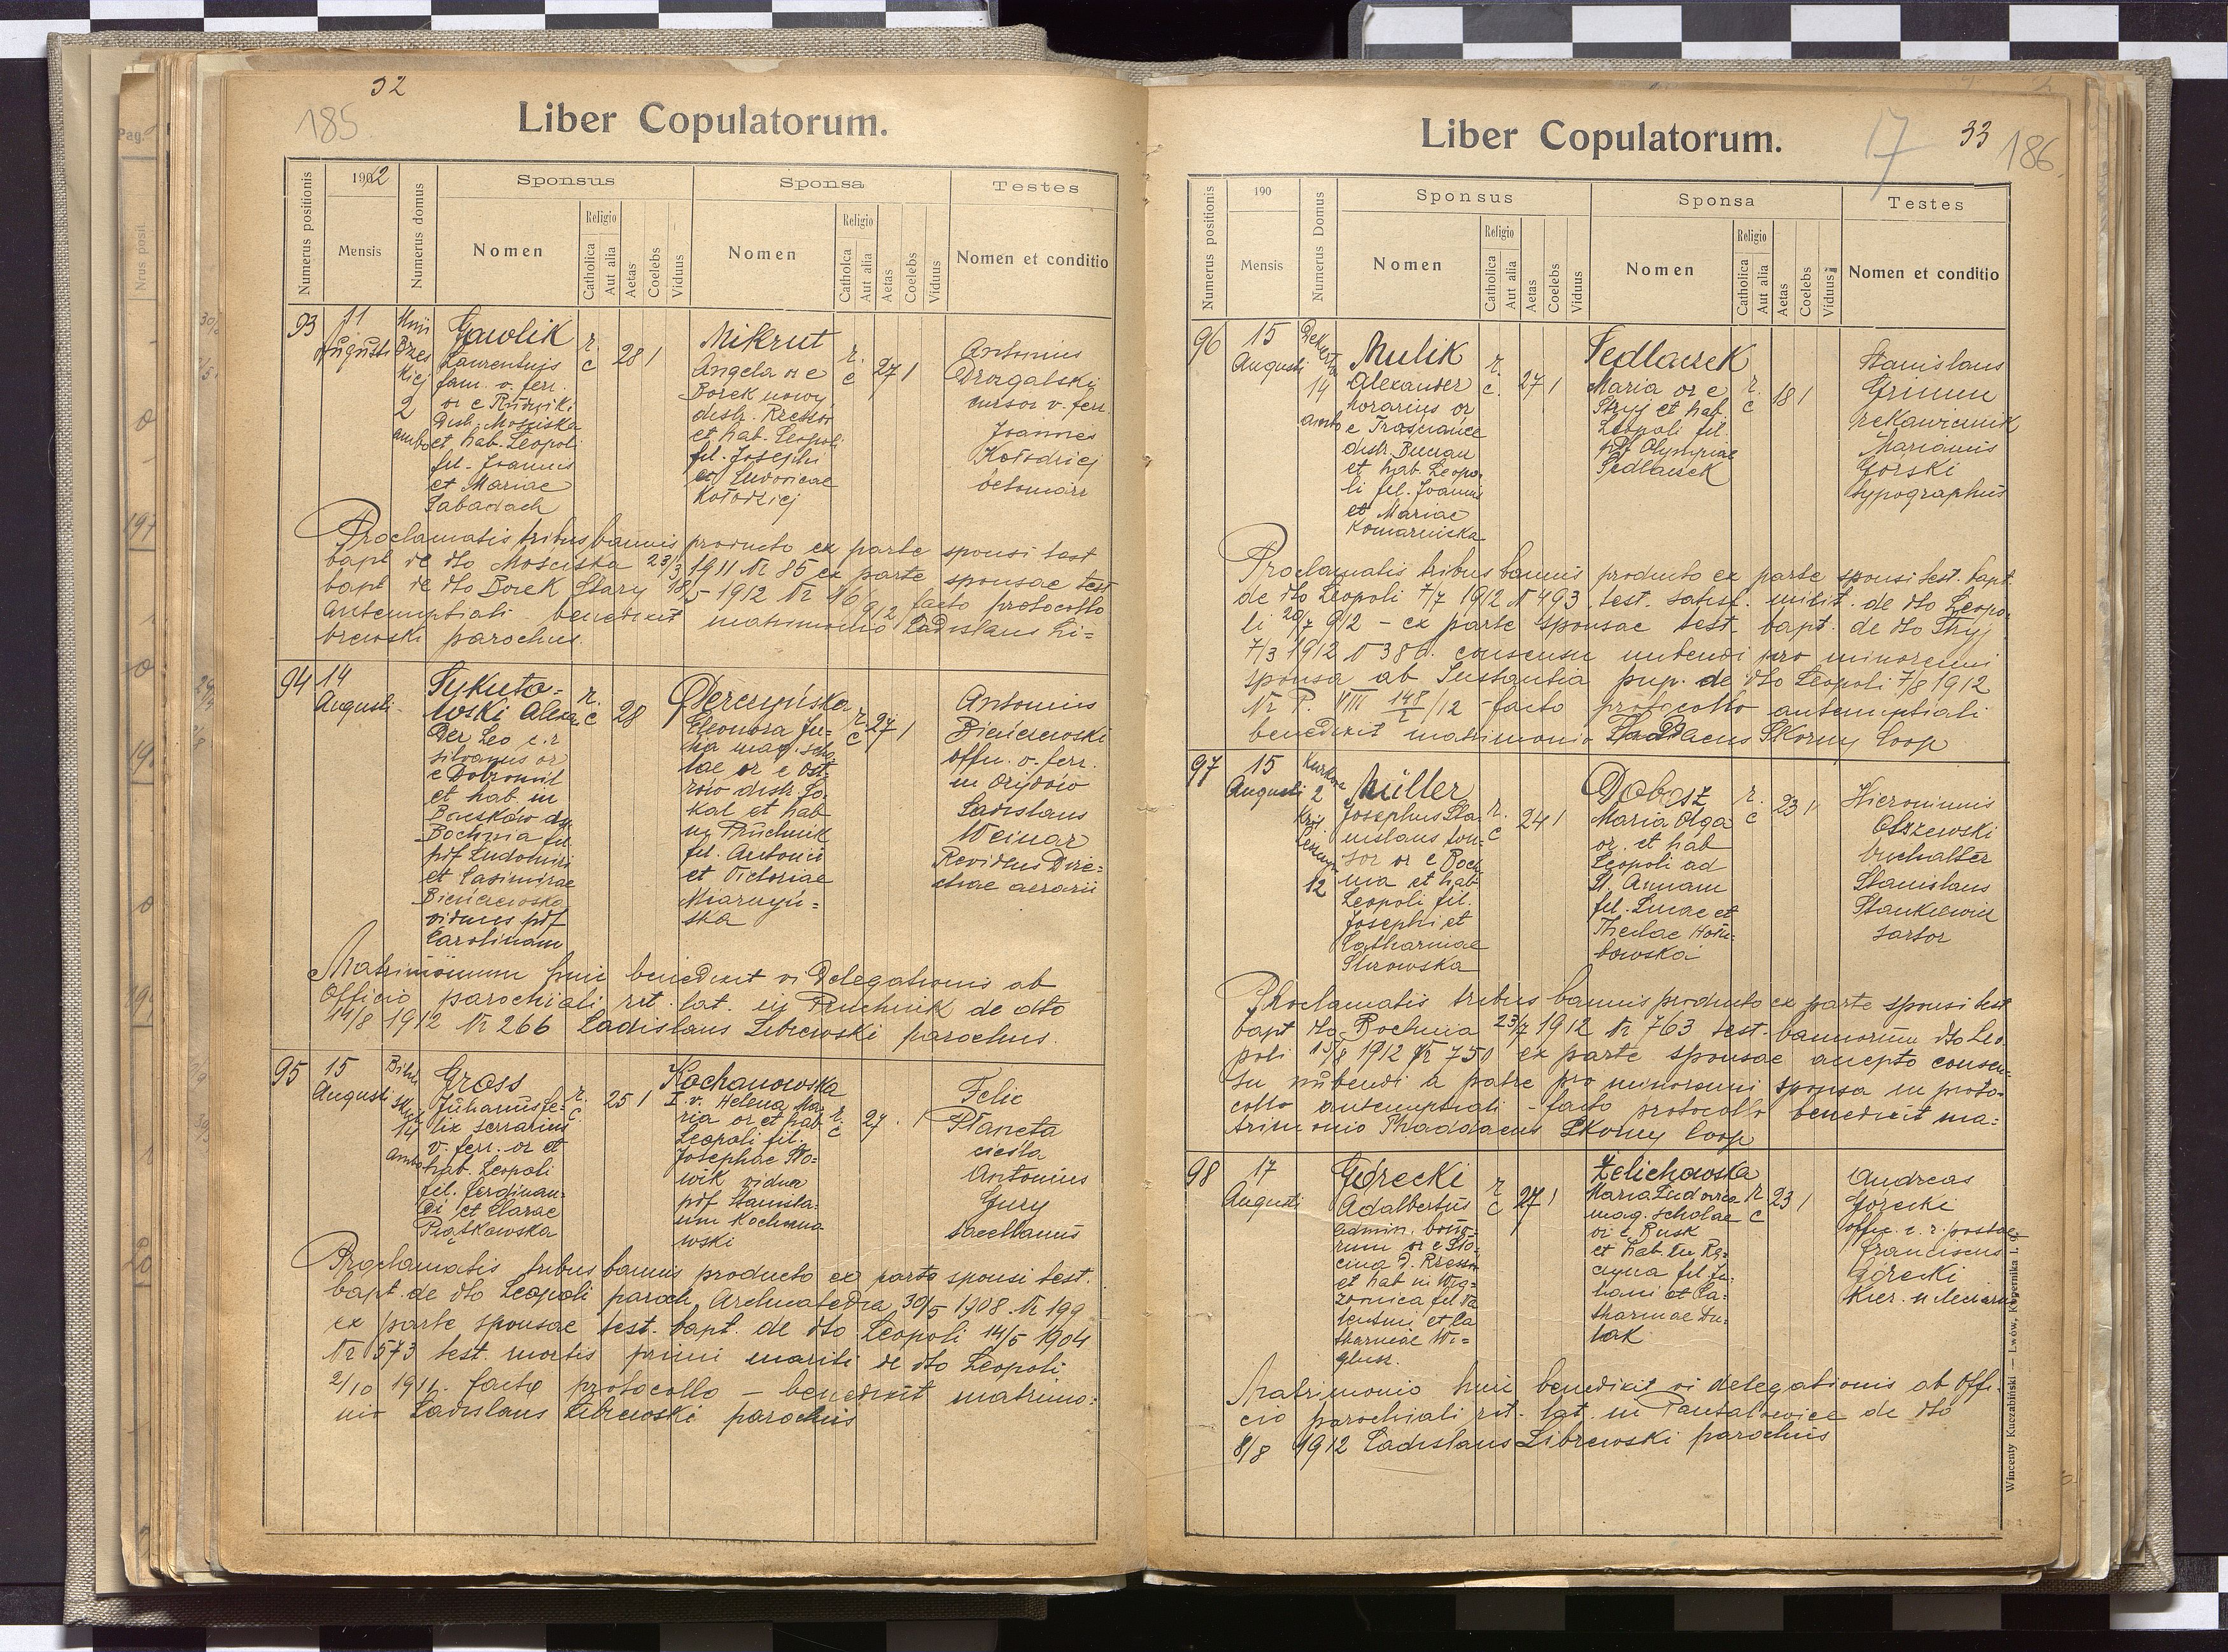 32
185
Liber Copulatorum.
Numerus positionis
1902
Mensis
Numerus domus
Sponsus
Nomen
Religio
Catholica
Aut alia
Aetas
Coelebs
Viduus
Sponsa
Nomen
Religio
Catholca
Aut alia
Aetas
Coelebs
Viduus
Testes
Nomen et conditio
93
11
Augusti
2
ambo
Gawlik
Laurentius
fam. v. ferr.
or e Rudniki
Distr. Mościska
et hab. Leopoli
fil. Joannis
et Mariae
Sabadach
r. c
28 1
Mikrut
Angela or e
Borek nowy
distr. Rzeszów
et hab. Leopoli
fil. Josephi
et Ludovicae
Kołodziej
r. c
27 1
Antonius
Dragalski
cursor v. ferr.
Joannes
Kołodziej
Proclamatis tribus bannis producto ex parte sponsi test
bapt de dto Mościska 23/3 1911 Nr 85 ex parte sponsae test
bapt de dto Borek Stary 18/5 1912 Nr 16/912 facto protocollo
antenuptiali benedixit matrimonio Ladislaus Li=
brewski parochus.
94
14
Augusti
Sykuto=
wski Alexan
der Leo c. r
silvanus or
e Dobromil
et hab. in
Bochnia fil
pdf Ludomiri
et Casimirae
Bieńczewska
viduus pdf
Carolinam
r. c
28
Derczyńska
Eleonora Ju=
lia mag. scho
lae or e Ost=
rów distr. So=
kal et hab
in Pruchnik
fil. Antonii
et Victoriae
Miarczyń=
ska
r. c
27 1
Antonius
Bieńczewski
offic. v. ferr.
in Ożydów
Ladislaus
Weinar
Revidens Dire=
ctiae aerarii
Matrimonium huic benedixit vi Delegationis ab
Officio parochiali rit. lat. in Pruchnik de dto
14/8 1912 Nr 266 Ladislaus Librewski parochus.
95
15
Augusti
14
Ambo
Gross
Julianus Fe=
lix serrarius
v. ferr. or et
hab. Leopoli
fil. Ferdinan=
di et Clarae
Piątkowska
r. c.
25 1
Kochanowska
I. v. Helena Ma=
ria or et hab
Leopoli fil.
Josephae No=
wik vidua
pdf Stanisla=
um Kochano
wski
r. c
27 1
Felix
Planeta
cieśla
Antonius
Jury
sacellanus
Proclamatis tribus bannis producto ex parte sponsi test.
bapt. de dto Leopoli paroch. Archicatedra 30/5 1908. Nr 199
ex parte sponsae test. bapt. de dto Leopoli 14/5 1904
Nr 573 test. mortis primi mariti de dto Leopoli
2/10 1911. facto protocollo – benedixit matrimo=
nio Ladislaus Librewski parochus
17
33
186.
Liber Copulatorum.
Numerus positionis
190
Mensis
Numerus Domus
Sponsus
Nomen
Religio
Catholica
Aut alia
Aetas
Coelebs
Viduus
Sponsa
Nomen
Religio
Catholica
Aut alia
Aetas
Coelebs
Viduus
Testes
Nomen et conditio
96
15
Augusti
14
ambo
Mulik
Alexander
horarius or
e Trościaniec
distr.
et hab. Leopo=
li fil. Joannis
et Mariae
Komarnicka
r. c.
27 1
Sedlaczek
Maria or e
Stryj et hab.
Leopoli fil.
pdf Olympiae
Sedlaczek
r. c
18 1
Stanislaus
Grimm
rękawicznik
Marianus
Gorski
typographus
Proclamatis tribus bannis producto ex parte sponsi test. bapt.
de dto Leopoli 7/7 1912 N 493 test. satisf. milit. de dto Leopo=
li 20/7 912 – ex parte sponsae test. bapt. de dto Stryj
7/3 1912 N 386. consensu nubendi pro minorenni
sponsa ab Instantia pup. de dto Leopoli 7/8 1912
Nr P. VIII 148/2 /12 – facto protocollo antenuptiali
benedixit matrimonio Thaddaeus Skorny Coop
97
15
Augusti
Kurkowa
2
12
Müller
Josephus Sta
nislaus ton=
sor or e Boch
nia et hab
Leopoli fil.
Josephi et
Catharinae
r. c
24 1
Dobosz
Maria Olga
or. et hab
Leopoli ad
St. Annam
fil. Lucae et
Theclae Hołu=
bowska
r. c
23 1
Hieronimus
Olszewski
buchalter
Stanislaus
Stankiewicz
sartor
Proclamatis tribus bannis producto ex parte sponsi test
bapt dto Bochnia 23/7 1912 Nr 763 test. bannorum dto Leo
poli 15/8 1912 Nr 750 ex parte sponsae accepto consen=
su nubendi a patre pro minorenni sponsa in proto=
collo antenuptiali – facto protocollo benedixit ma=
trimonio Thaddaeus Skorny Coop
98
17
Augusti
Górecki
Adalbertus
admin. bono=
rum or e Sło=
cina d. Rzeszów
et hab in Wią=
zownica fil Va
lentini et Ca
tharinae Wi=
glusz.
r. c
27 1
Żelichowska
Maria Ludovica
mag. scholae
or e Busk
et hab. in Ra=
czyna fil. Ju=
liani et Ca=
tharinae Du=
lak
r. c
23 1
Andreas
Górecki
offic. c. r. postae
Franciscus
Górecki
kier. mleczarni
Matrimonio huic benedixit vi delegationis ab offi=
cio parochiali rit. lat. in Pantalowice de dto
8/8 1912 Ladislaus Librewski parochus
Wincenty Kuczabiński — Lwów, Kopernika l. 9.